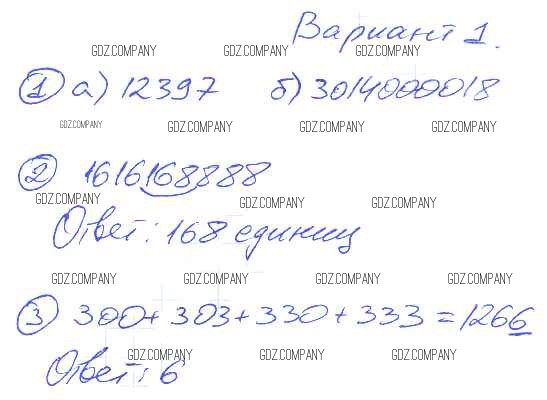 Вариант 1.
GDZ.COMPANY GDZ.COMPANY GDZ.COMPANY
① а) 12397 б) 3014000018
GDZ.COMPANY GDZ.COMPANY GDZ.COMPANY GDZ.COMPANY
② 1616168888
GDZ.COMPANY GDZ.COMPANY GDZ.COMPANY
Ответ: 168 единиц
GDZ.COMPANY GDZ.COMPANY GDZ.COMPANY GDZ.COMPANY
③ 300 + 303 + 330 + 333 = 1266
GDZ.COMPANY GDZ.COMPANY GDZ.COMPANY
Ответ: 6